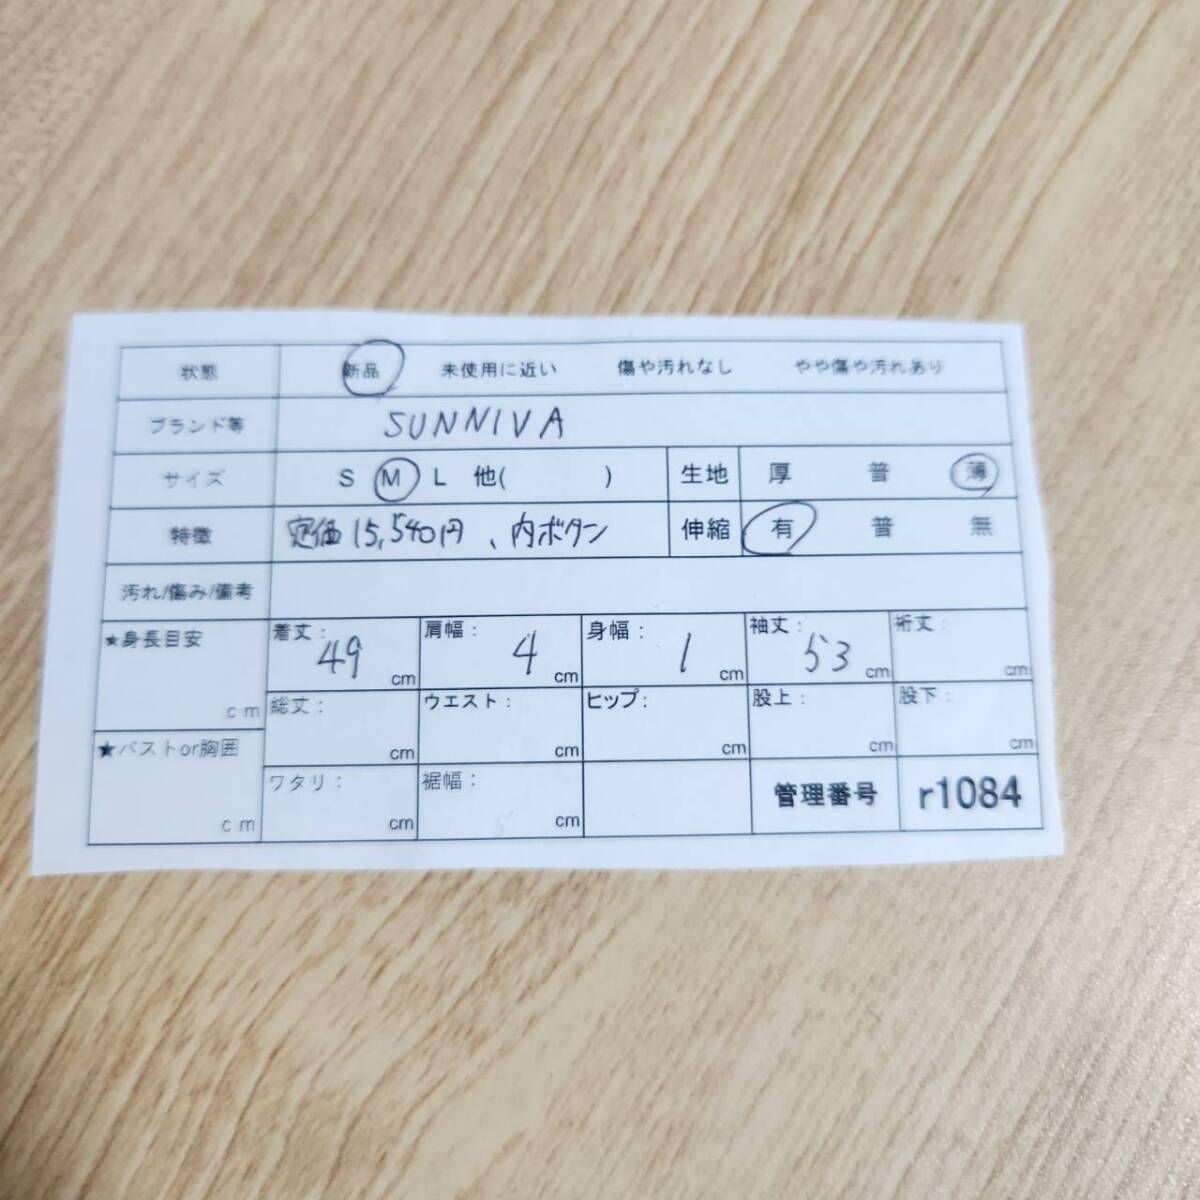 状態 新品 未使用に近い 傷や汚れなし やや傷や汚れあり
ブランド等 SUNNIVA
サイズ S M L 他( ) 生地 厚 普 薄
特徴 定価15,540円、内ボタン 伸縮 有 普 無
汚れ/傷み/備考
★身長目安 cm 着丈: 49 cm 肩幅: 4 cm 身幅: 1 cm 袖丈: 53 cm 裄丈: cm
総丈: cm ウエスト: cm ヒップ: cm 股上: cm 股下: cm
★バストor胸囲 cm ワタリ: cm 裾幅: cm 管理番号 r1084